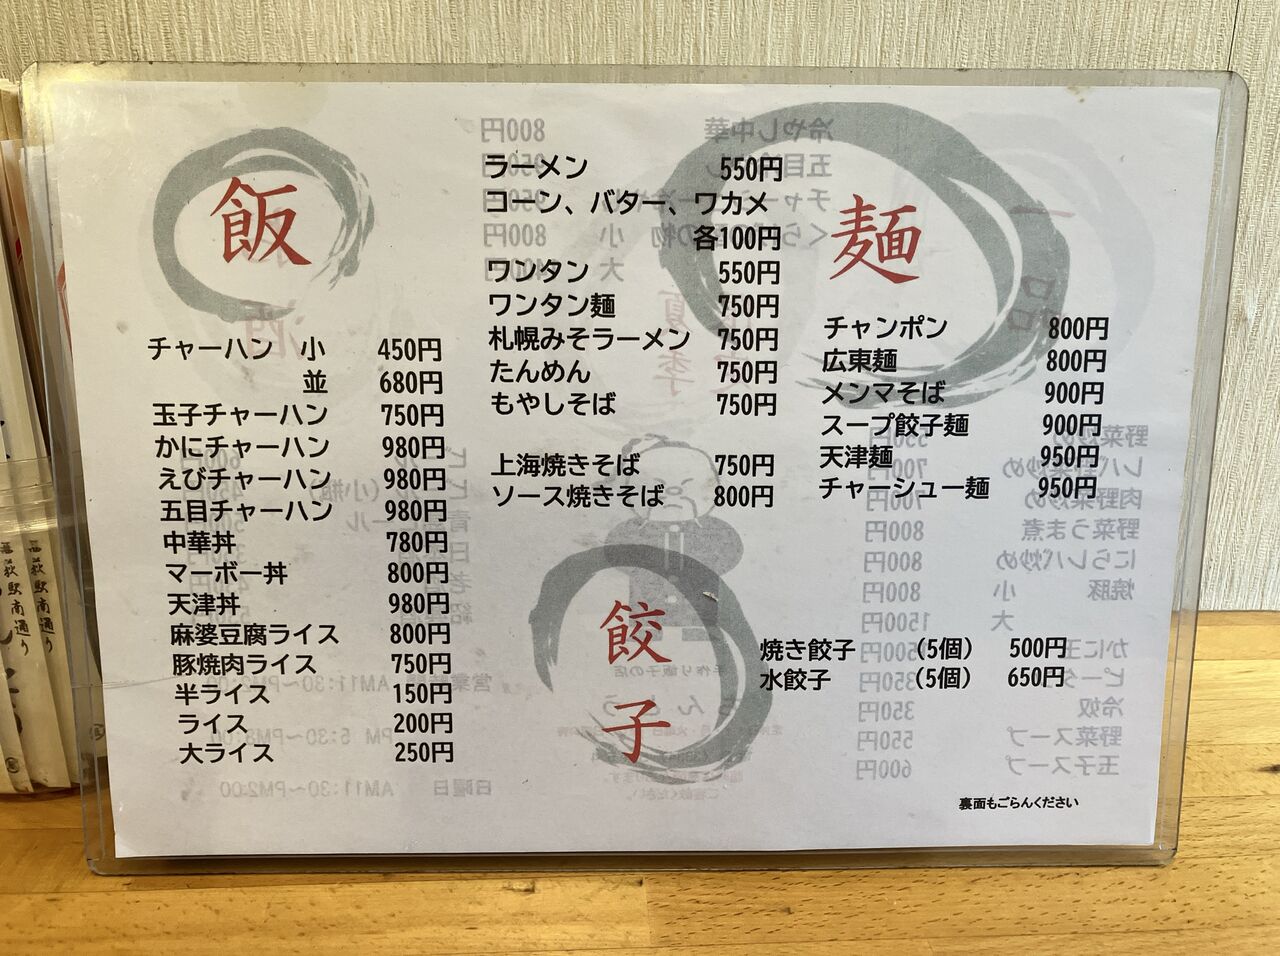 飯
チャーハン 小 450円
並 680円
玉子チャーハン 750円
かにチャーハン 980円
えびチャーハン 980円
五目チャーハン 980円
中華丼 780円
マーボー丼 800円
天津丼 980円
麻婆豆腐ライス 800円
豚焼肉ライス 750円
半ライス 150円
ライス 200円
大ライス 250円
ラーメン 550円
コーン、バター、ワカメ
各100円
ワンタン 550円
ワンタン麺 750円
札幌みそラーメン 750円
たんめん 750円
もやしそば 750円
上海焼きそば 750円
ソース焼きそば 800円
麺
チャンポン 800円
広東麺 800円
メンマそば 900円
スープ餃子麺 900円
天津麺 950円
チャーシュー麺 950円
餃子
焼き餃子 (5個) 500円
水餃子 (5個) 650円
裏面もごらんください